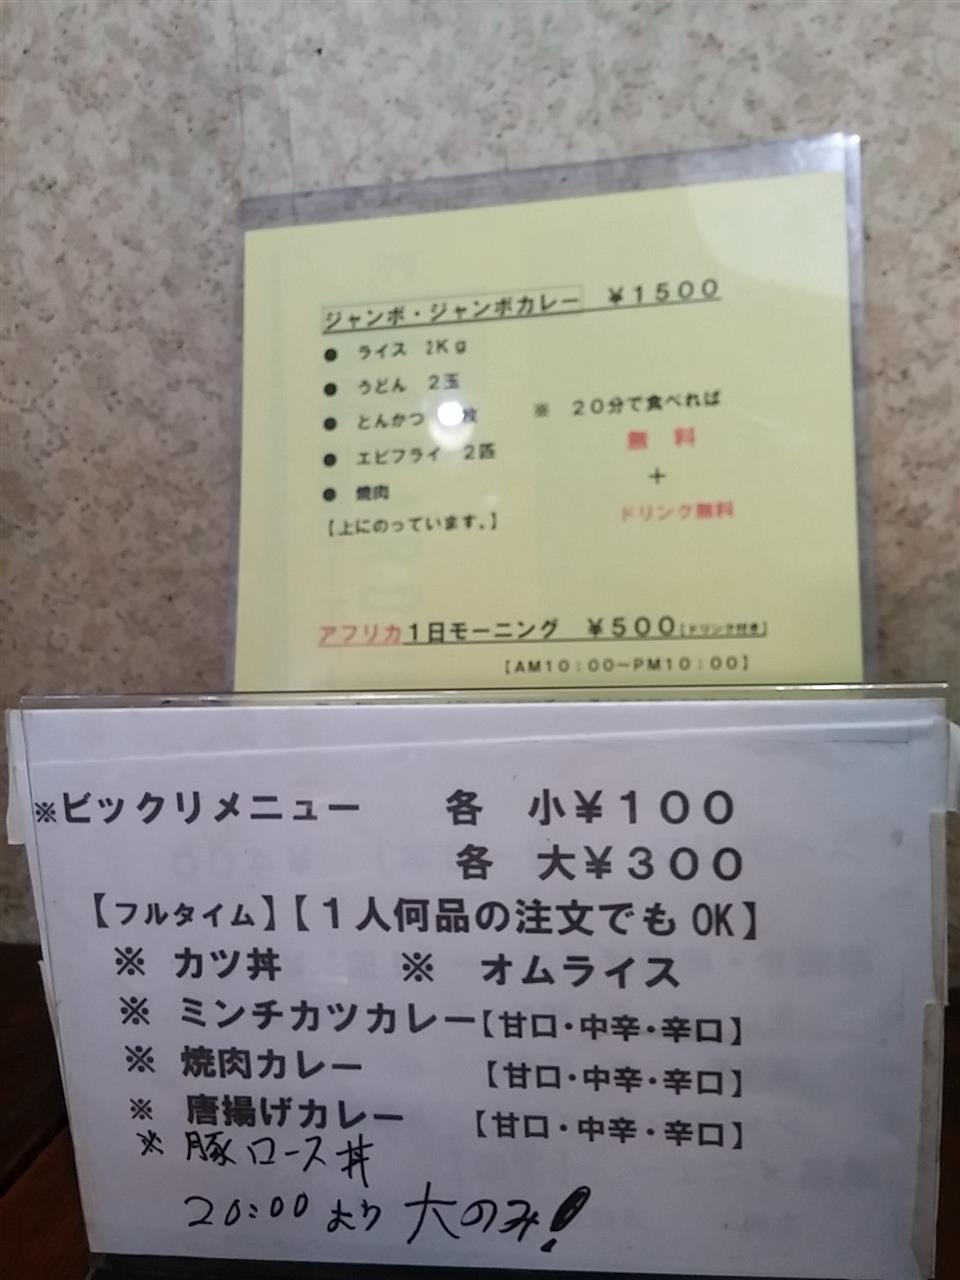 ジャンボ・ジャンボカレー ￥１５００
● ライス 2Kg
● うどん ２玉
● とんかつ 枚
● エビフライ ２匹
● 焼肉
【上にのっています。】
※ ２０分で食べれば
無 料
＋
ドリンク無料
アフリカ１日モーニング ￥５００［ドリンク付き］
【AM10：00～PM10：00】
※ビックリメニュー 各 小￥１００
各 大￥３００
【フルタイム】【１人何品の注文でもOK】
※ カツ丼 ※ オムライス
※ ミンチカツカレー【甘口・中辛・辛口】
※ 焼肉カレー 【甘口・中辛・辛口】
※ 唐揚げカレー 【甘口・中辛・辛口】
※ 豚ロース丼
20:00より大のみ!